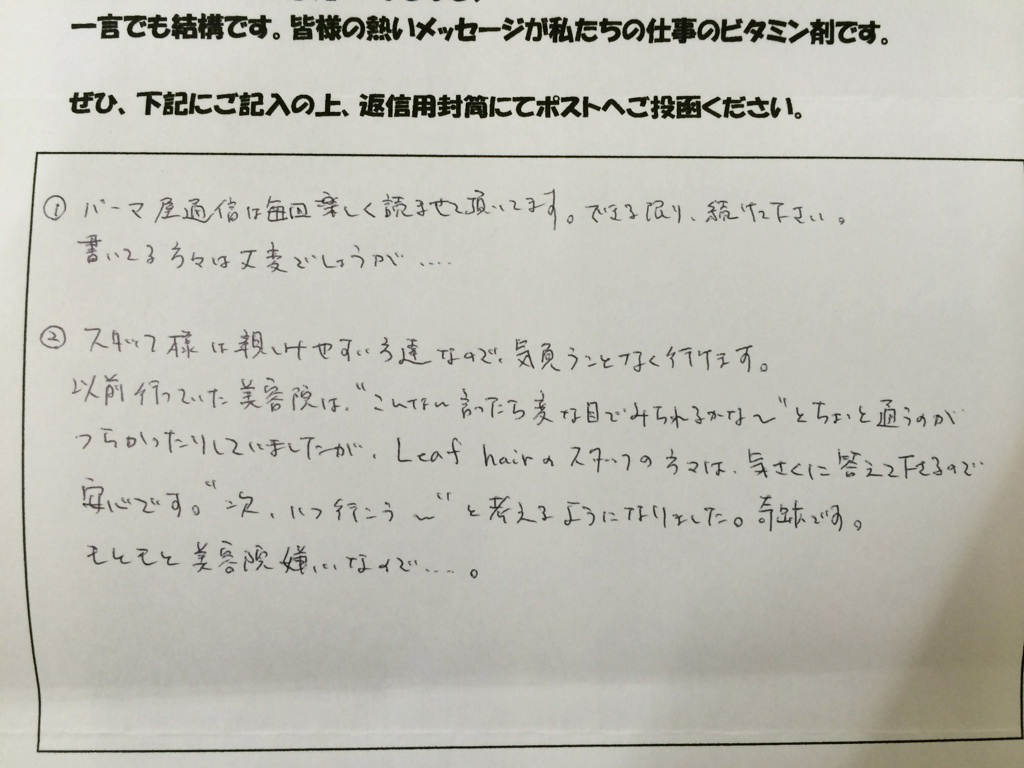 一言でも結構です。皆様の熱いメッセージが私たちの仕事のビタミン剤です。
ぜひ、下記にご記入の上、返信用封筒にてポストへご投函ください。
① パーマ屋通信は毎回楽しく読ませて頂いてます。できる限り、続けて下さい。
書いてる方々は大変でしょうが….
② スタッフ様は親しみやすい方達なので、気負うことなく行けます。
以前行っていた美容院は、"こんなん言ったら変な目でみられるかな〜"とちょっと通うのが
つらかったりしていましたが、Leaf hairのスタッフの方々は、気さくに答えて下さるので
安心です。"次、いつ行こう〜"と考えるようになりました。奇跡です。
もともと美容院嫌いなので….。